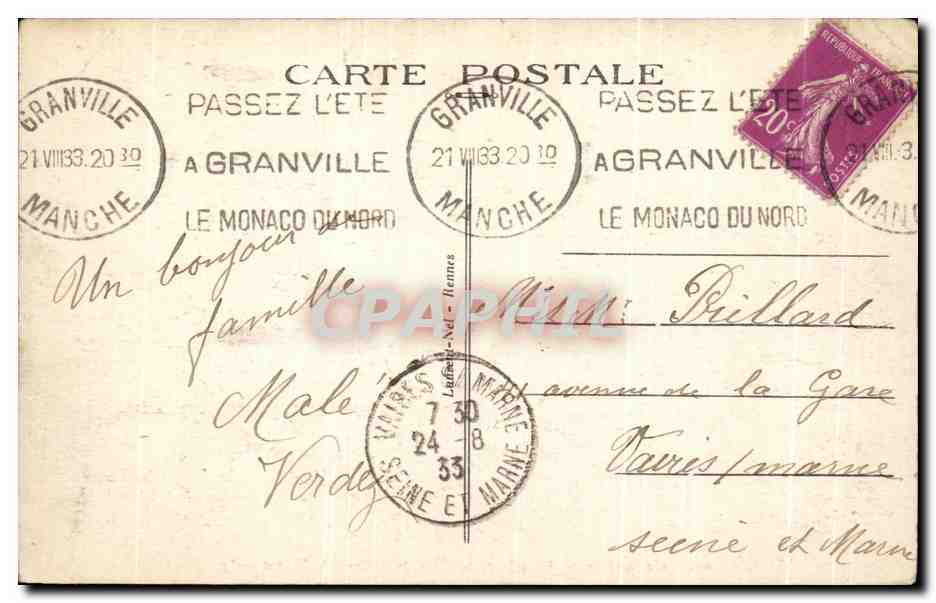 CARTE POSTALE
REPUBLIQUE FRANC
20c
POSTES
GRANVILLE
21 VIII 33. 20 30
MANCHE
PASSEZ L'ETE
A GRANVILLE
LE MONACO DU NORD
GRANVILLE
21 VIII 33. 20 30
MANCHE
PASSEZ L'ETE
A GRANVILLE
LE MONACO DU NORD
GRAN
21 VIII 3.
MANC
Un bonjour
famille
Malé
Verdez
- Rennes
VAIRES S/ MARNE
7 30
24 -8
33
SEINE ET MARNE
Prillard
avenue de la Gare
Vaires/marne
seine et Marne
CPAPHIL